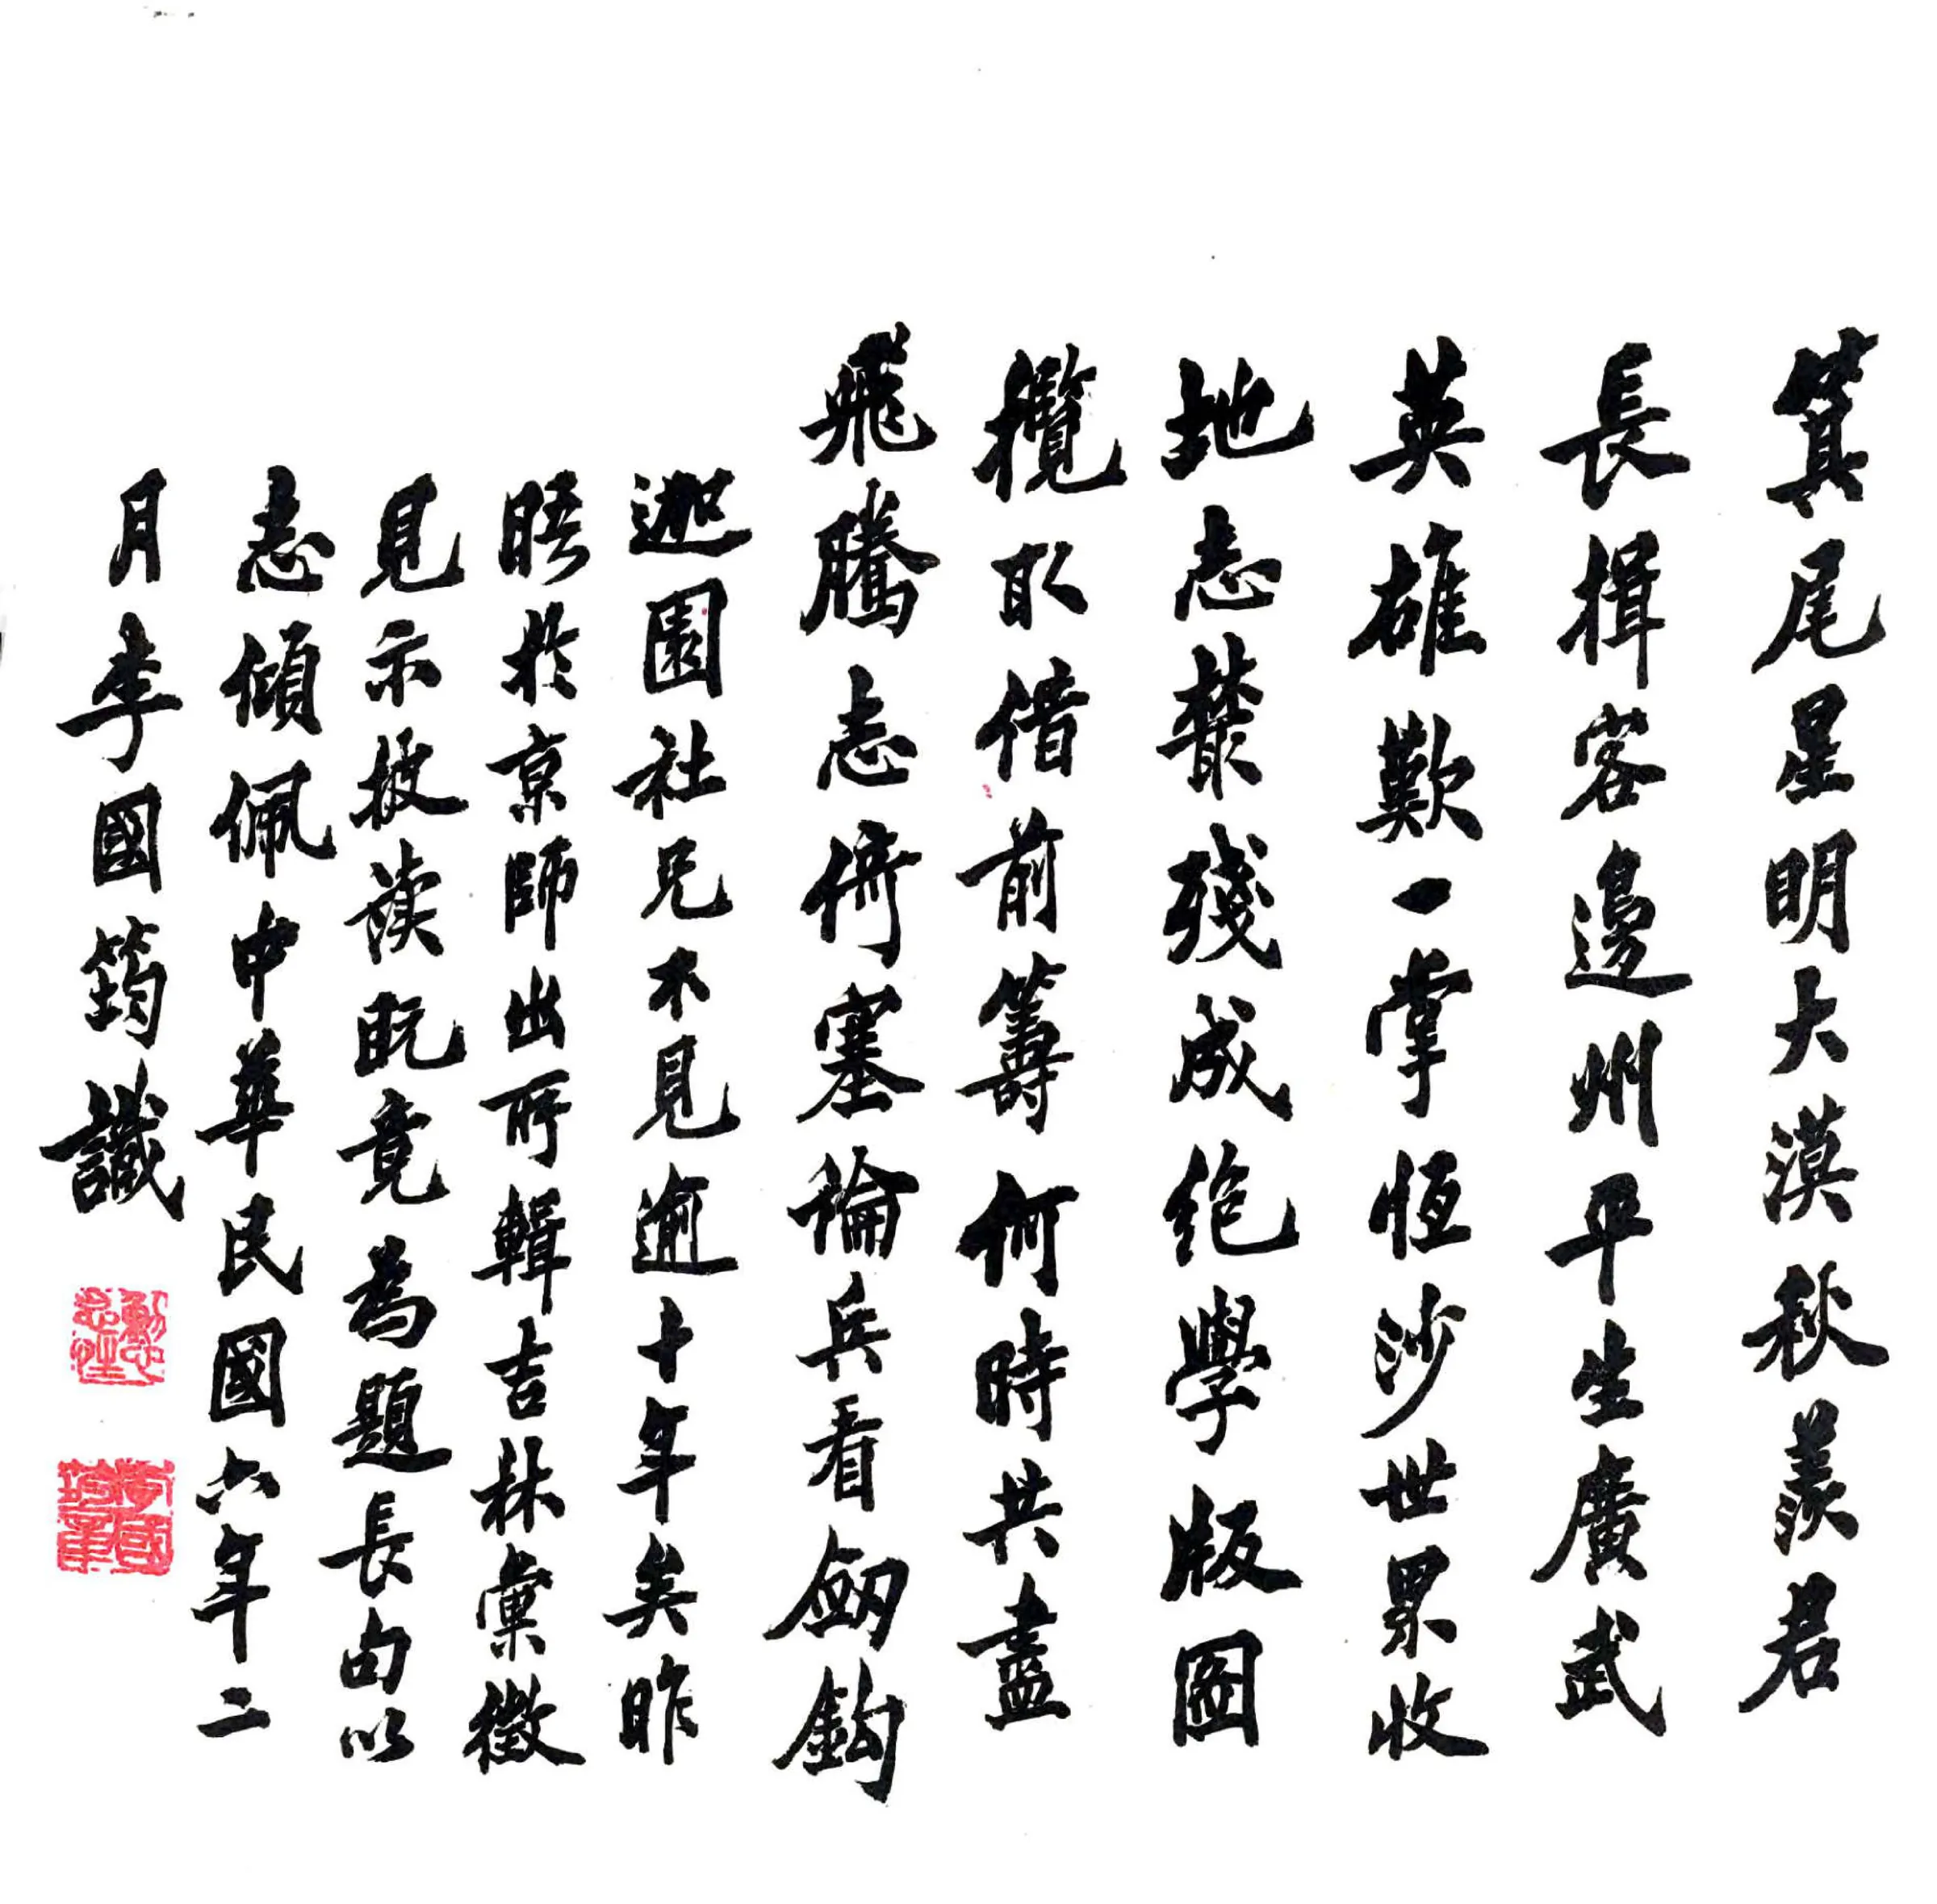 箕尾星明大漠秋羨君
長揖客邊州平生廣武
英雄歎一掌恆沙世界收
地志叢殘成絕學版圖
攬取借前籌何時共盡
飛騰志倚塞論兵看劒鉤
逖園社兄不見逾十年矣昨
晤於京師出所輯吉林彙徵
見示披讀既竟為題長句以
志傾佩中華民國六年二
月李國筠識
李國筠章